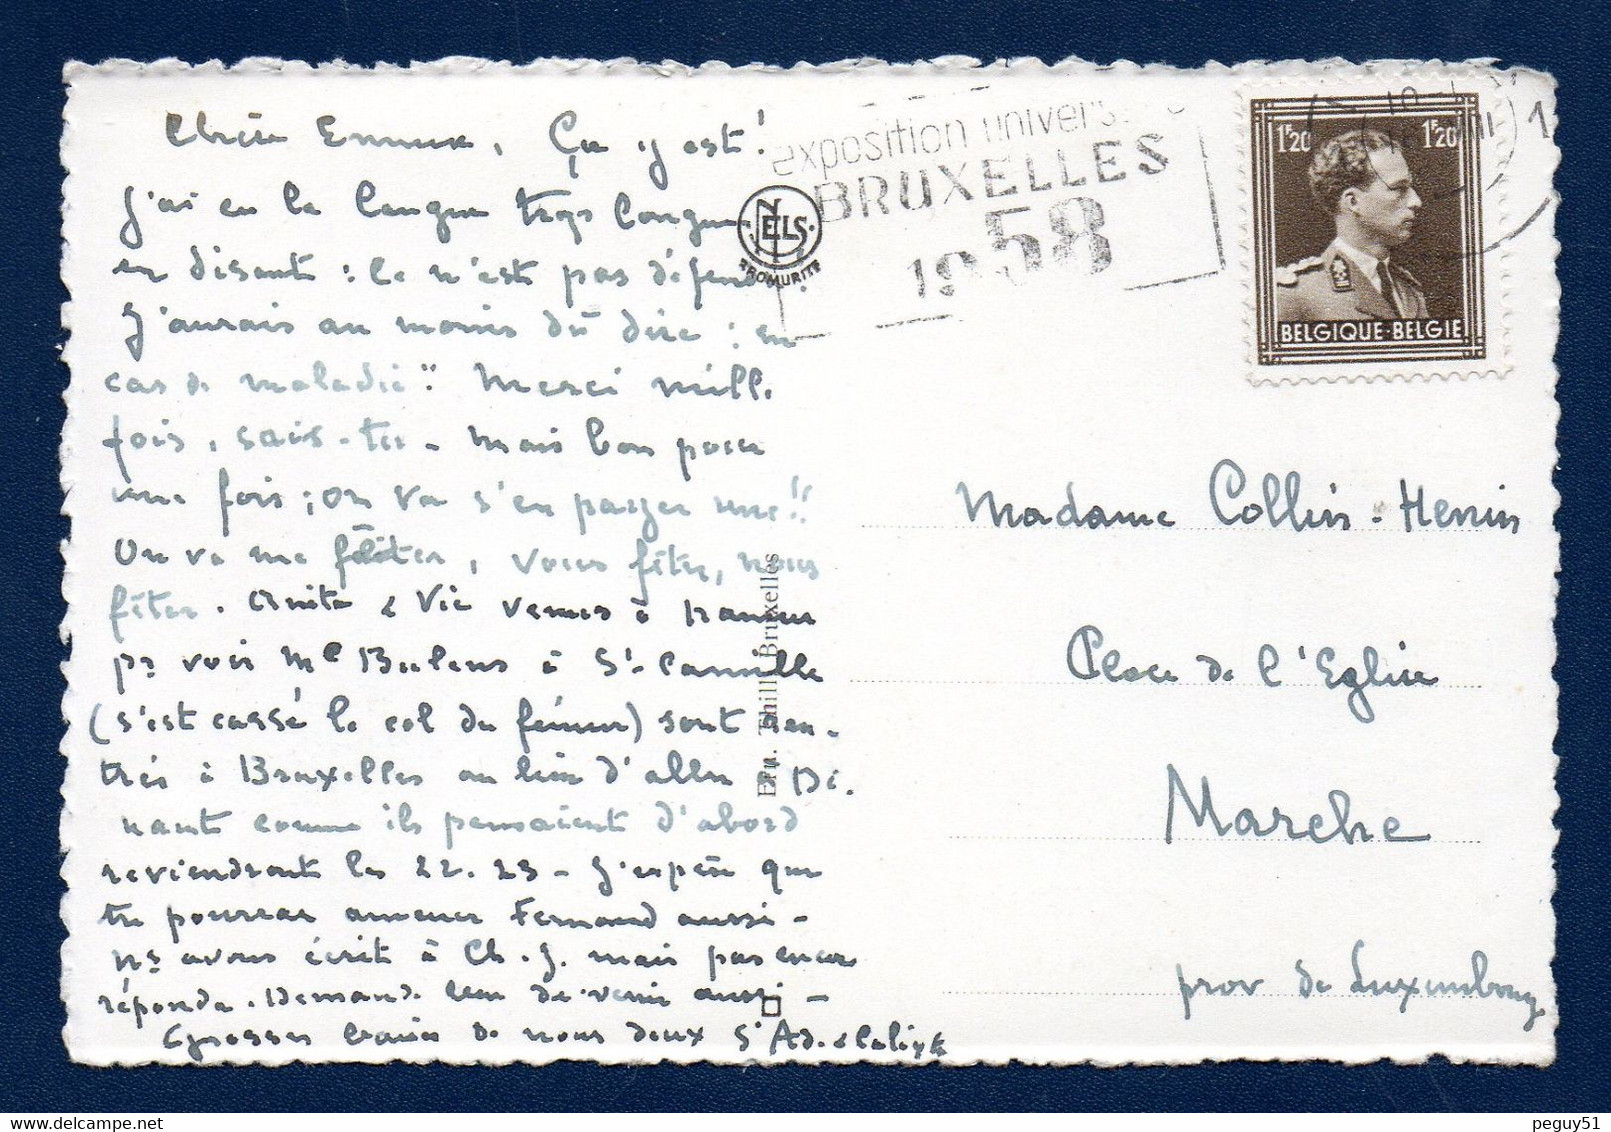 Chère Emma, Ça y est!
J'ai eu la langue trop longue
en disant : ce n'est pas défendu.
J'aurais au moins dû dire : en
cas de maladie". Merci mille
fois, sais-tu - Mais bon pour
une fois ; on va s'en passer une!!
On va me fêter, vous fêter, nous
fêter. Anita & Vic venus à Namur
pr voir Mle Bulens à St Camille
(s'est cassé le col du fémur) sont ren-
trés à Bruxelles au lieu d'aller à Di-
nant comme ils pensaient d'abord
reviendront les 22.23 - J'espère que
tu pourras amener Fernand aussi -
ns avons écrit à Ch. J. mais pas encore
réponda. Demand. leu de venir aussi -
Grosses baises de nous deux
NELS
BROMURITE
Ern. Thill, Bruxelles
exposition universelle
BRUXELLES
1958
1F20 1F20
BELGIQUE·BELGIE
Madame Collin-Henin
Place de l'Eglise
Marche
prov de Luxembourg
peguy51